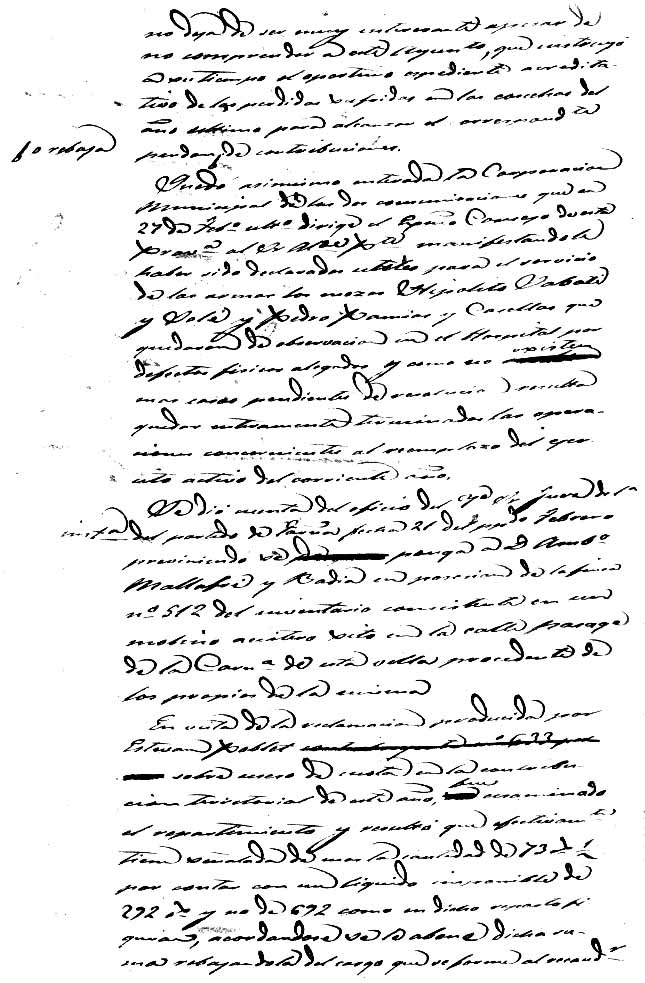 no deja de ser muy interesante apesar de
no comprender a este asunto, que instruya
a su tiempo el oportuno espediente acredita-
tivo de las perdidas sufridas en las cosechas del
año ultimo para alcanzar el correspond.te
perdon de contribuciones.
Quedó asimismo enterada la Corporacion
Municipal de las dos comunicaciones que en
27 de Feb.o ult.o dirige el Consejo de esta
Prov.a al Sr Alc.e P.te manifestandole
haber sido declarados utiles para el servicio
de las armas los mozos Hipolito Sabaté
y Solé y Pedro Pamies y Casellas que
quedaron de observacion en el Hospital por
defectos fisicos alegados y como no existen
mas casos pendientes de resolucion resulta
quedar enteramente terminadas las opera-
ciones concernientes al reemplazo del ejer-
cito activo del corriente año.
Se dió cuenta del oficio del Juez de 1.a
inst.a del partido de fecha 21 del Febrero
previniendo se ponga a D. Amb.o
Mallafré y Badia en posesion de la finca
nº 512 del inventario consistente en un
molino aceitero sito en la calle pasage
de la Carn.a de esta villa procedente de
los propios de la misma
En vista de la reclamacion producida por
Estevan Poblet
sobre exceso de cuota en la contribu-
cion territorial de este año, examinado
el repartimiento y resultó que efectivam.te
tiene señalada de mas la cantidad de 73
por contar con un liquido imponible de
292 y no de 692 como en dicho reparto fi-
guran, acordandose se le abone dicha su-
ma rebajandola del cargo que se forme al recaud.r